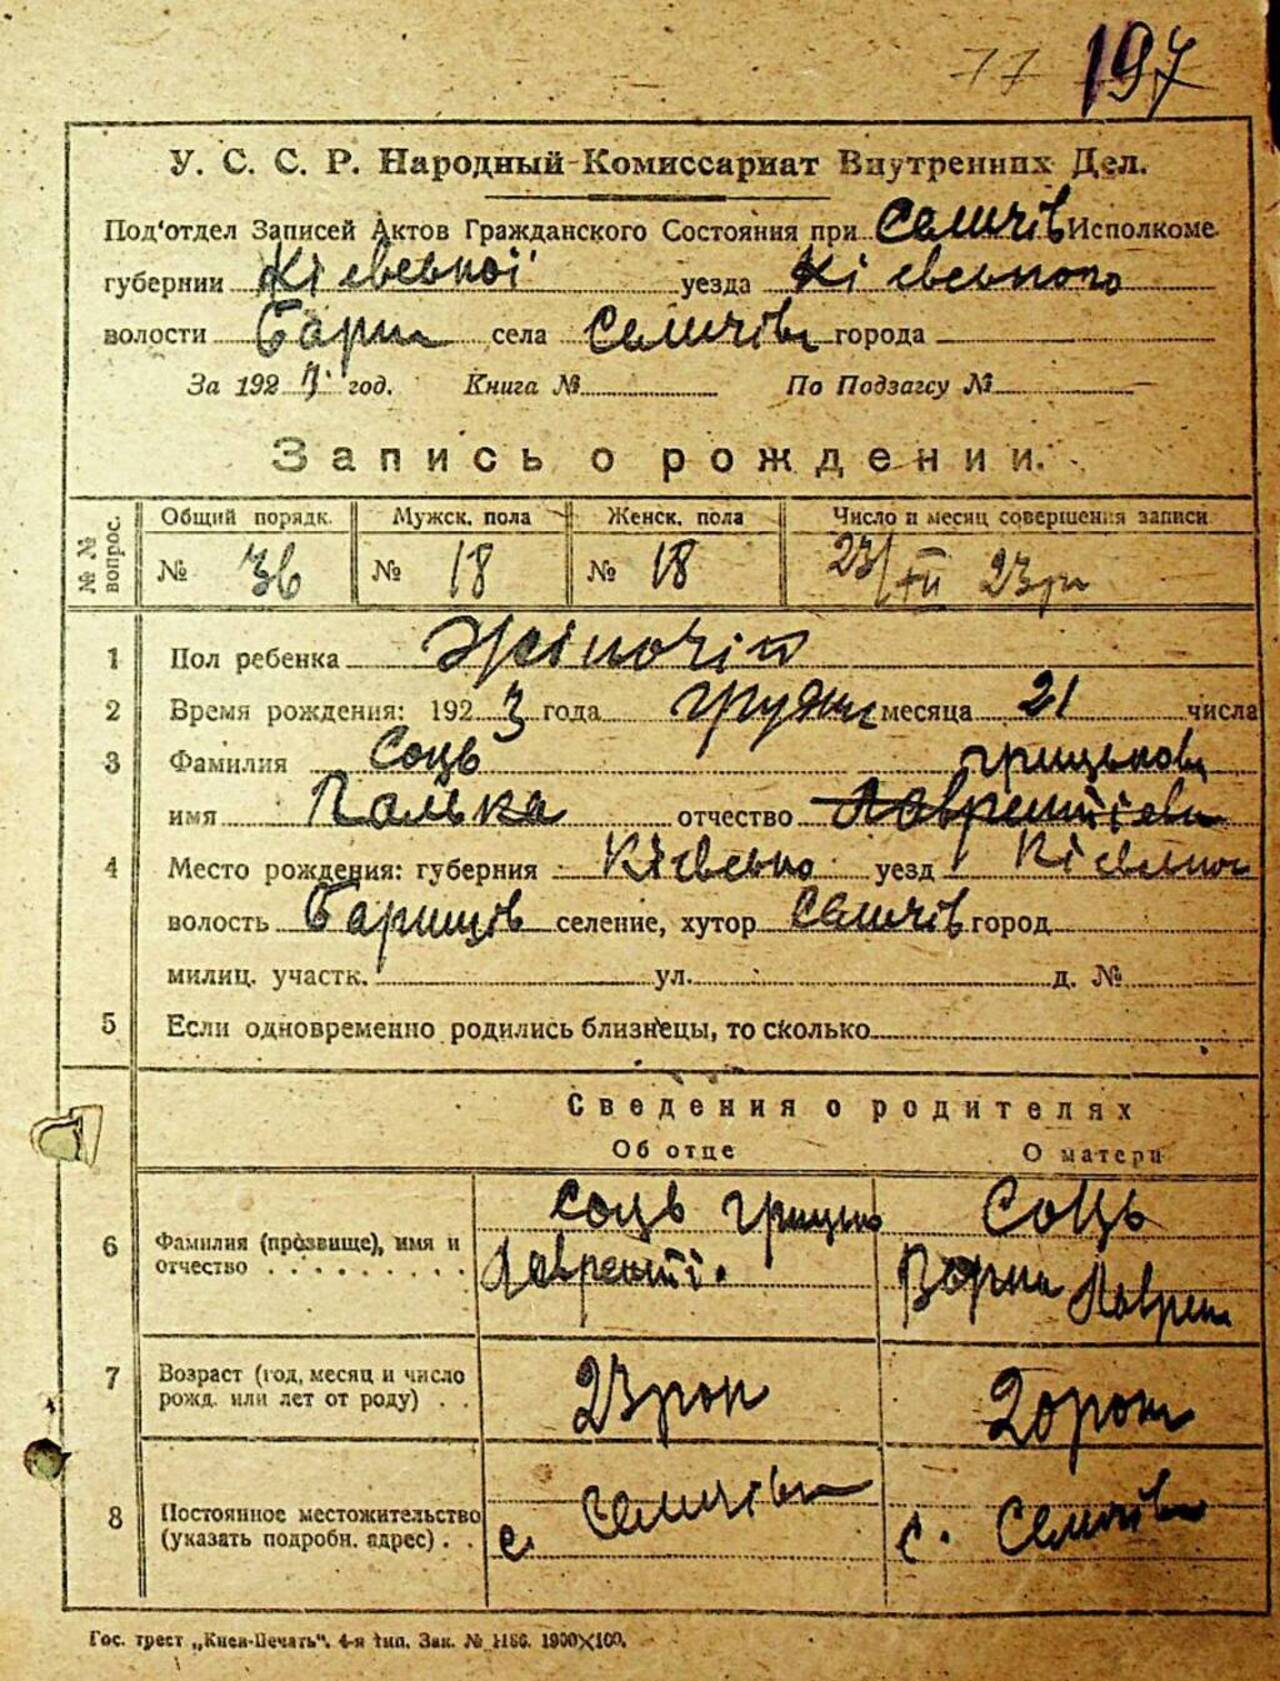 77 197
У. С. С. Р. Народный Комиссариат Внутренних Дел.
Под'отдел Записей Актов Гражданского Состояния при Селичів Исполкоме
губернии Київської уезда Київського
волости Бариш села Селичівк города
За 1923 год. Книга № По Подзагсу №
Запись о рождении.
№ № вопрос. Общий порядк. Мужск. пола Женск. пола Число и месяц совершения записи
№ 36 № 18 № 18 23/XII 23 р
1 Пол ребенка Жіночій
2 Время рождения: 1923 года грудня месяца 21 числа
3 Фамилия Соць Грицькова
имя Палька отчество Лаврентіева
4 Место рождения: губерния уезд
волость Баришів селение, хутор Селичів город
милиц. участк. ул. д. №
5 Если одновременно родились близнецы, то сколько
Сведения о родителях
Об отце О матери
6 Фамилия (прозвище), имя и отчество Соць Грицько Лавренті. Соць Лаврен
7 Возраст (год, месяц и число рожд. или лет от роду) 23 рок 20 рок
8 Постоянное местожительство (указать подробн. адрес) с. Селичівк с. Селичівк
Гос. трест „Киев-Печать“. 4-я тип. Зак. № 1186. 1900×100.